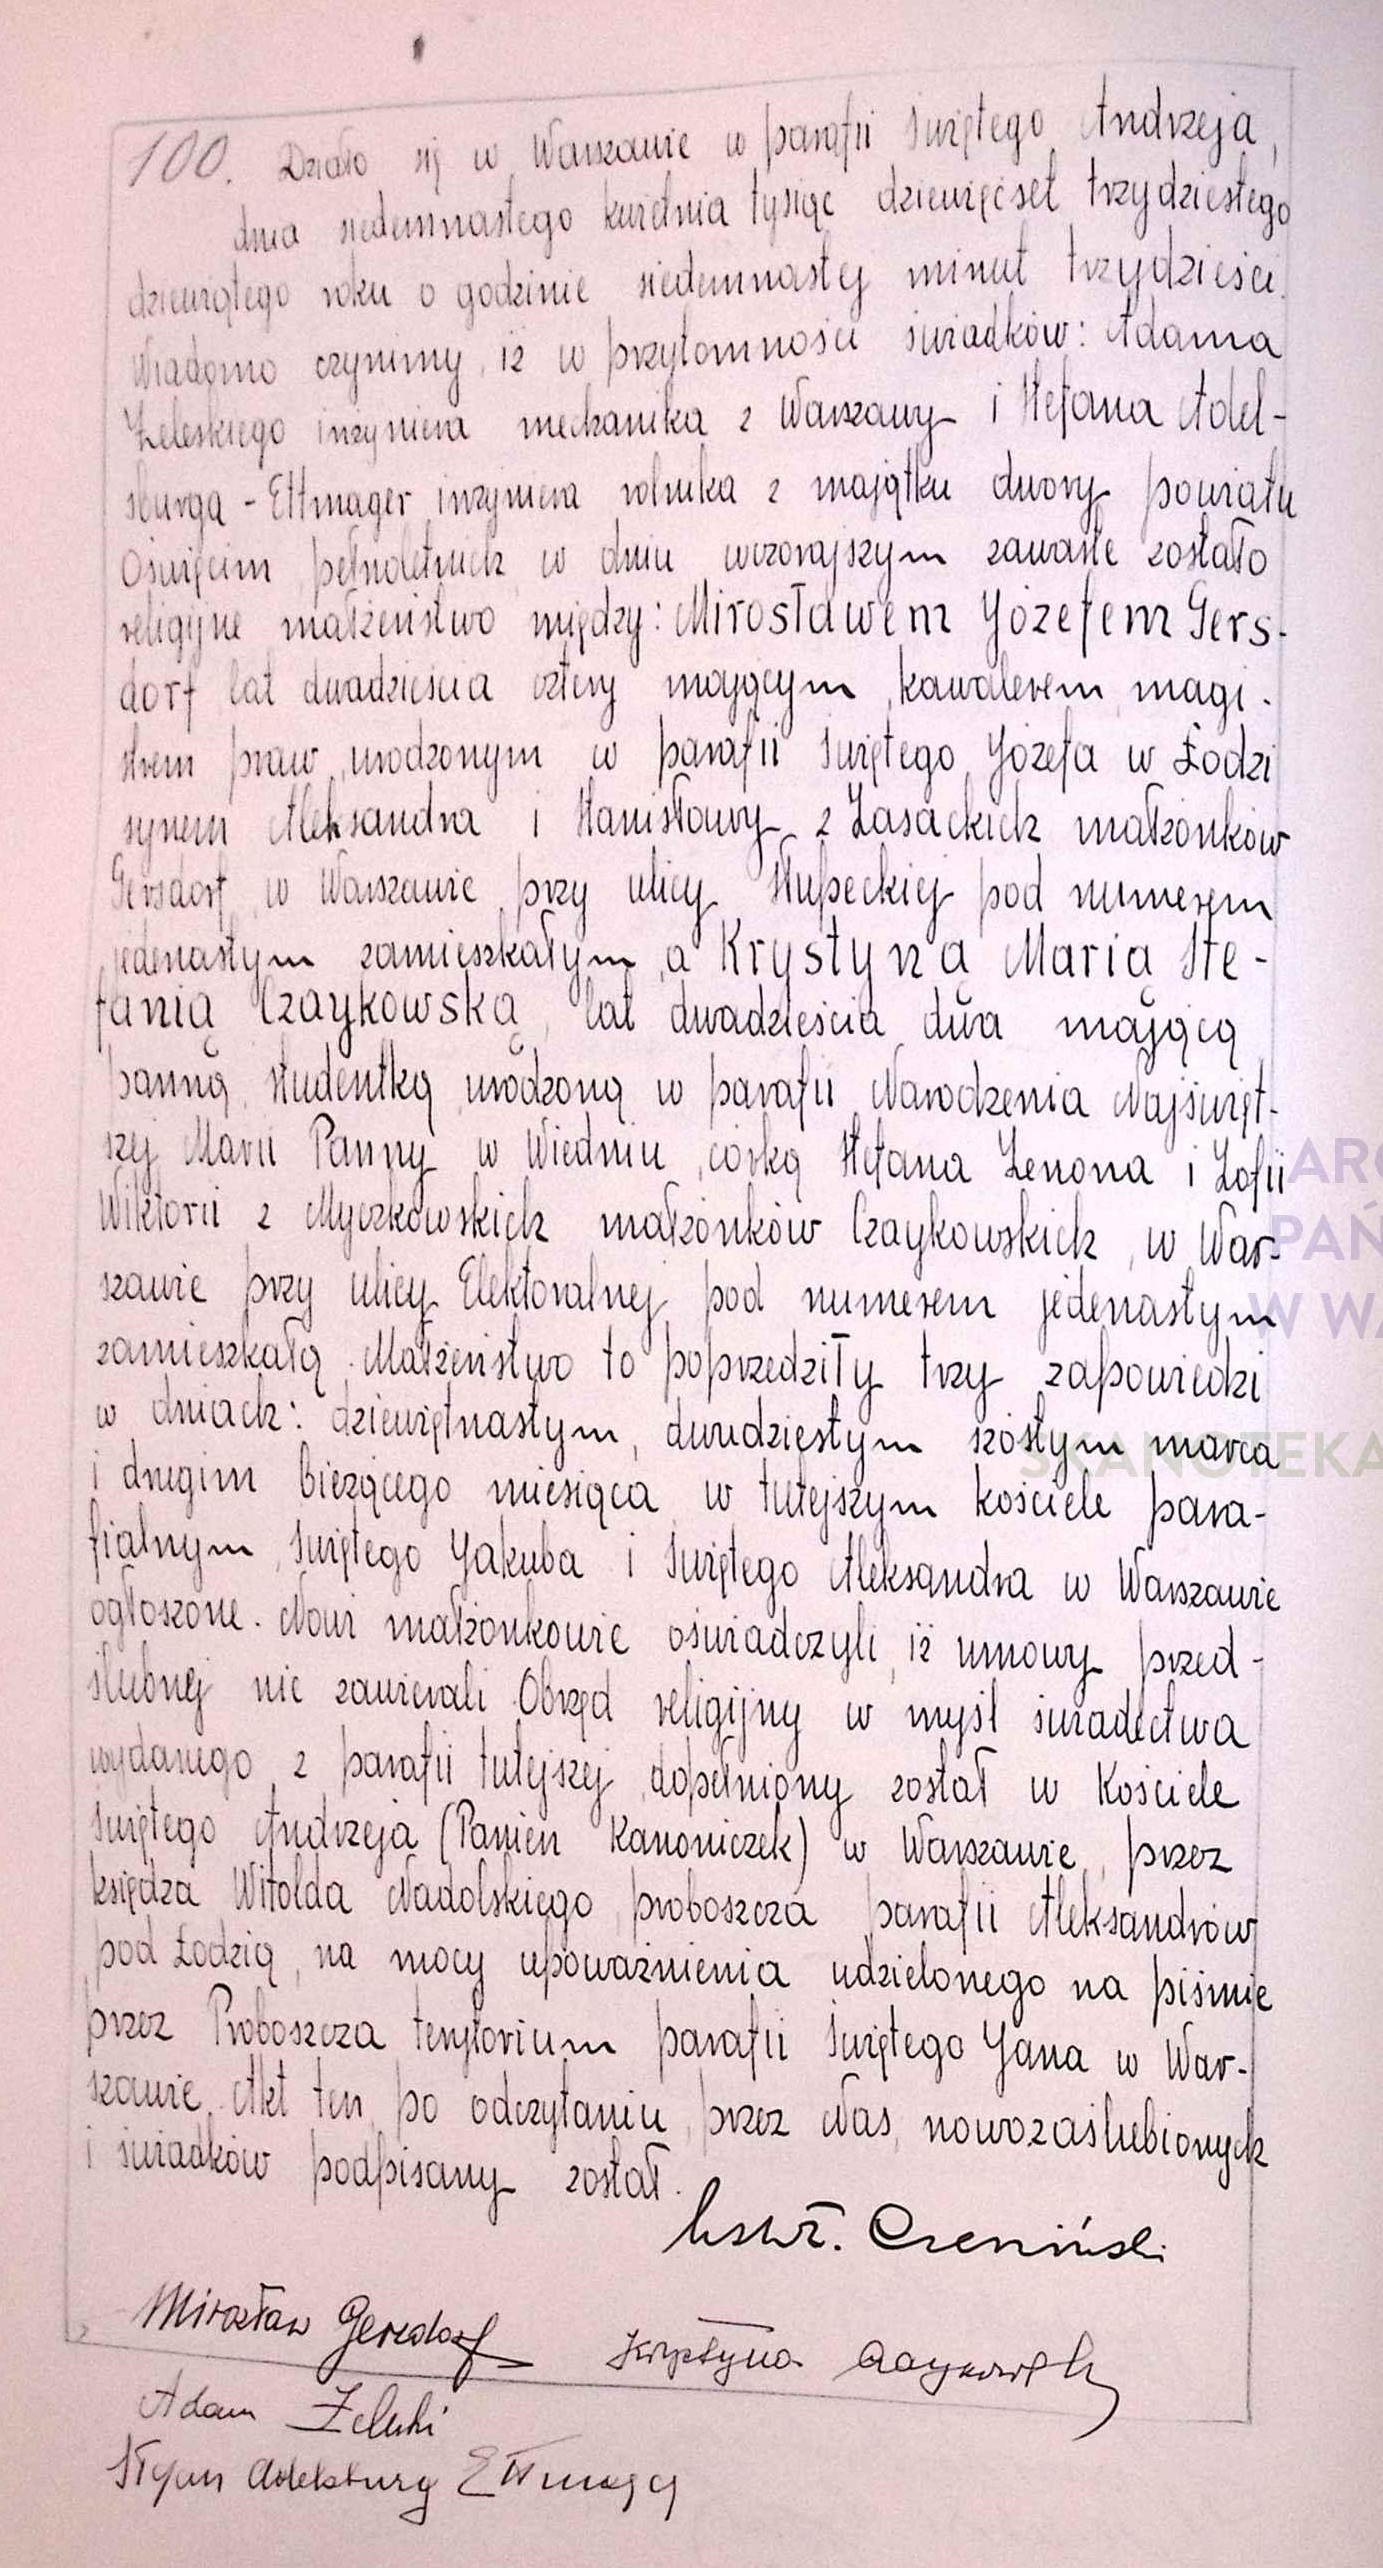 100. Działo się w Warszawie w parafii świętego Andrzeja,
dnia siedemnastego kwietnia tysiąc dziewięćset trzydziestego
dziewiątego roku o godzinie siedemnastej minut trzydzieści.
Wiadomo czynimy, iż w przytomności świadków: Adama
Żeleskiego inżyniera mechanika z Warszawy i Stefana Adel-
sburga - Ettmager inżyniera rolnika z majątku dwory powiatu
Oświęcim pełnoletnich w dniu wczorajszym zawarte zostało
religijne małżeństwo między: Mirosławem Józefem Gers-
dorf lat dwadzieścia cztery mającym, kawalerem, magi-
strem praw, urodzonym w parafii świętego Józefa w Łodzi
synem Aleksandra i Stanisławy z Zasackich małżonków
Gersdorf, w Warszawie przy ulicy Słupeckiej pod numerem
jedenastym zamieszkałym, a Krystyną Marią Ste-
fanią Czaykowską, lat dwadzieścia dwa mającą
panną, studentką, urodzoną w parafii Narodzenia Najświęt-
szej Marii Panny w Wiedniu, córką Stefana Zenona i Zofii
Wiktorii z Myczkowskich małżonków Czaykowskich, w War-
szawie przy ulicy Elektoralnej pod numerem jedenastym
zamieszkałą. Małżeństwo to poprzedziły trzy zapowiedzi
w dniach: dziewiętnastym, dwudziestym szóstym marca
i drugim bieżącego miesiąca w tutejszym kościele para-
fialnym, świętego Jakuba i świętego Aleksandra w Warszawie
ogłoszone. Nowi małżonkowie oświadczyli, iż umowy przed-
ślubnej nie zawierali. Obrzęd religijny w myśl świadectwa
wydanego z parafii tutejszej, dopełniony został w Kościele
świętego Andrzeja (Panien Kanoniczek) w Warszawie, przez
księdza Witolda Nadolskiego, proboszcza parafii Aleksandrów
pod Łodzią, na mocy upoważnienia udzielonego na piśmie
przez Proboszcza terytorium parafii świętego Jana w War-
szawie. Akt ten po odczytaniu przez Nas, nowozaślubionych
i świadków podpisany został.
Mirosław Gersdorf Krystyna Czaykowska
Adam Żeleski
Stefan Adelsburg Ettmayer
ARC
PAŃ
W WA
SKANOTEKA